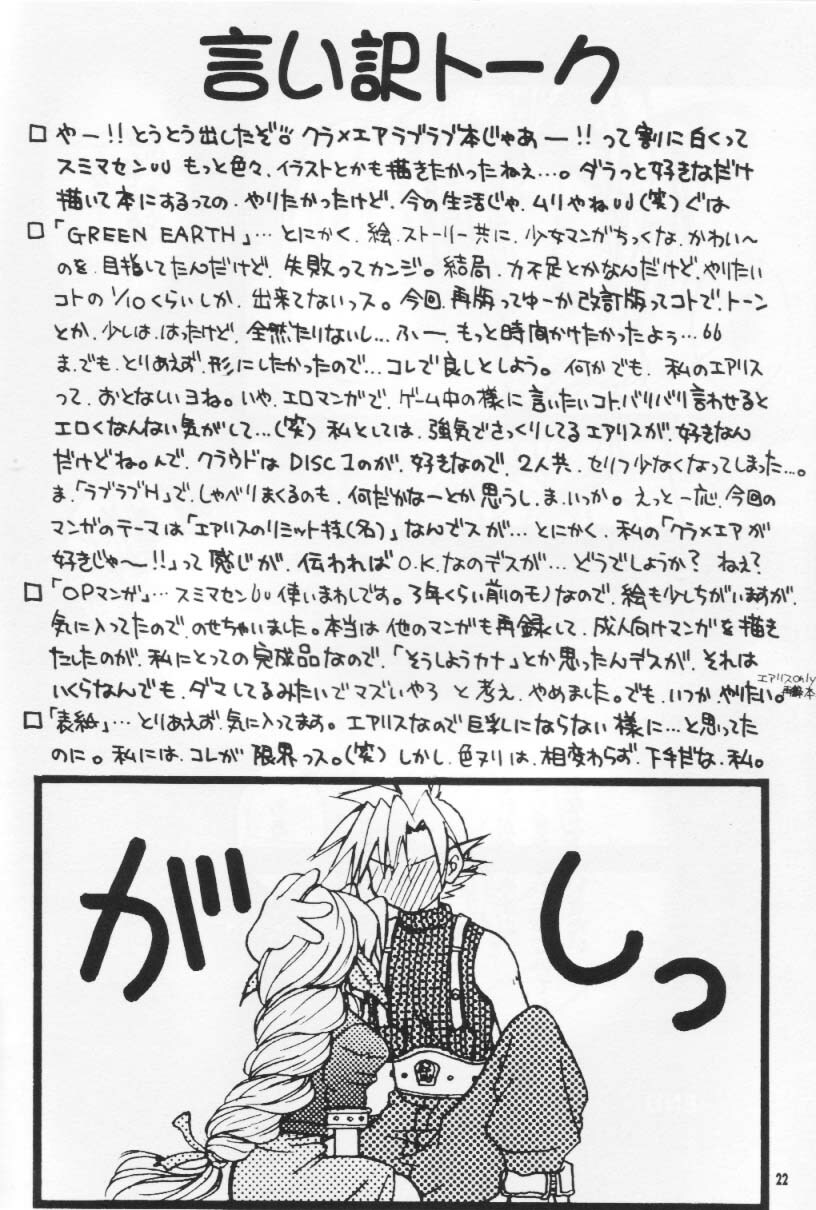 言い訳トーク
□ やー!!とうとう出したぞ クラ×エアラブラブ本じゃあー!!って割に白くって
スミマセン もっと色々、イラストとかも描きたかったねぇ…。ダラっと好きなだけ
描いて本にするっての、やりたかったけど、今の生活じゃ、ムリやね(笑)ぐは
□「GREEN EARTH」…とにかく、絵、ストーリー共に、少女マンガちっくな、かわい〜
のを、目指してたんだけど、失敗ってカンジ。結局、力不足とかなんだけど、やりたい
コトの1/10くらいしか、出来てないっス。今回、再版ってゆーか改訂版ってコトで、トーン
とか、少しは、はったけど、全然たりないし…ふー、もっと時間かけたかったよぅ…
ま、でも、とりあえず、形にしたかったので…コレで良しとしよう。何かでも、私のエアリス
って、おとなしいヨね。いや、エロマンガで、ゲーム中の様に言いたいコト、バリバリ言わせると
エロくなんない気がして…(笑)私としては、強気でさっくりしてるエアリスが、好きなん
だけどね。んで、クラウドはDISC1のが、好きなので、2人共、セリフ少なくなってしまった…。
ま、「ラブラブH」で、しゃべりまくるのも、何だかなーとか思うし、ま、いっか。えっと一応、今回の
マンガのテーマは「エアリスのリミット技(名)」なんでスが…とにかく、私の「クラ×エアが
好きじゃ〜!!」って感じが、伝わればO.K.なのデスが…どうでしょうか?ねぇ?
□「OPマンガ」…スミマセン 使いまわしです。3年くらい前のモノなので、絵も少しちがいますが、
気に入ってたので、のせちゃいました。本当は他のマンガも再録して、成人向けマンガを描き
たしたのが、私にとっての完成品なので、「そうしようカナ」とか思ったんデスが、それは
いくらなんでも、ダマしてるみたいでマズいやろ と考え、やめました。でも、いつか、やりたい。エアリスOnly再録本
□「表紙」…とりあえず、気に入ってます。エアリスなので巨乳にならない様に…と思ってた
のに。私には、コレが限界っス。(笑)しかし、色ヌリは、相変わらず、下手だな、私。
がしっ
22